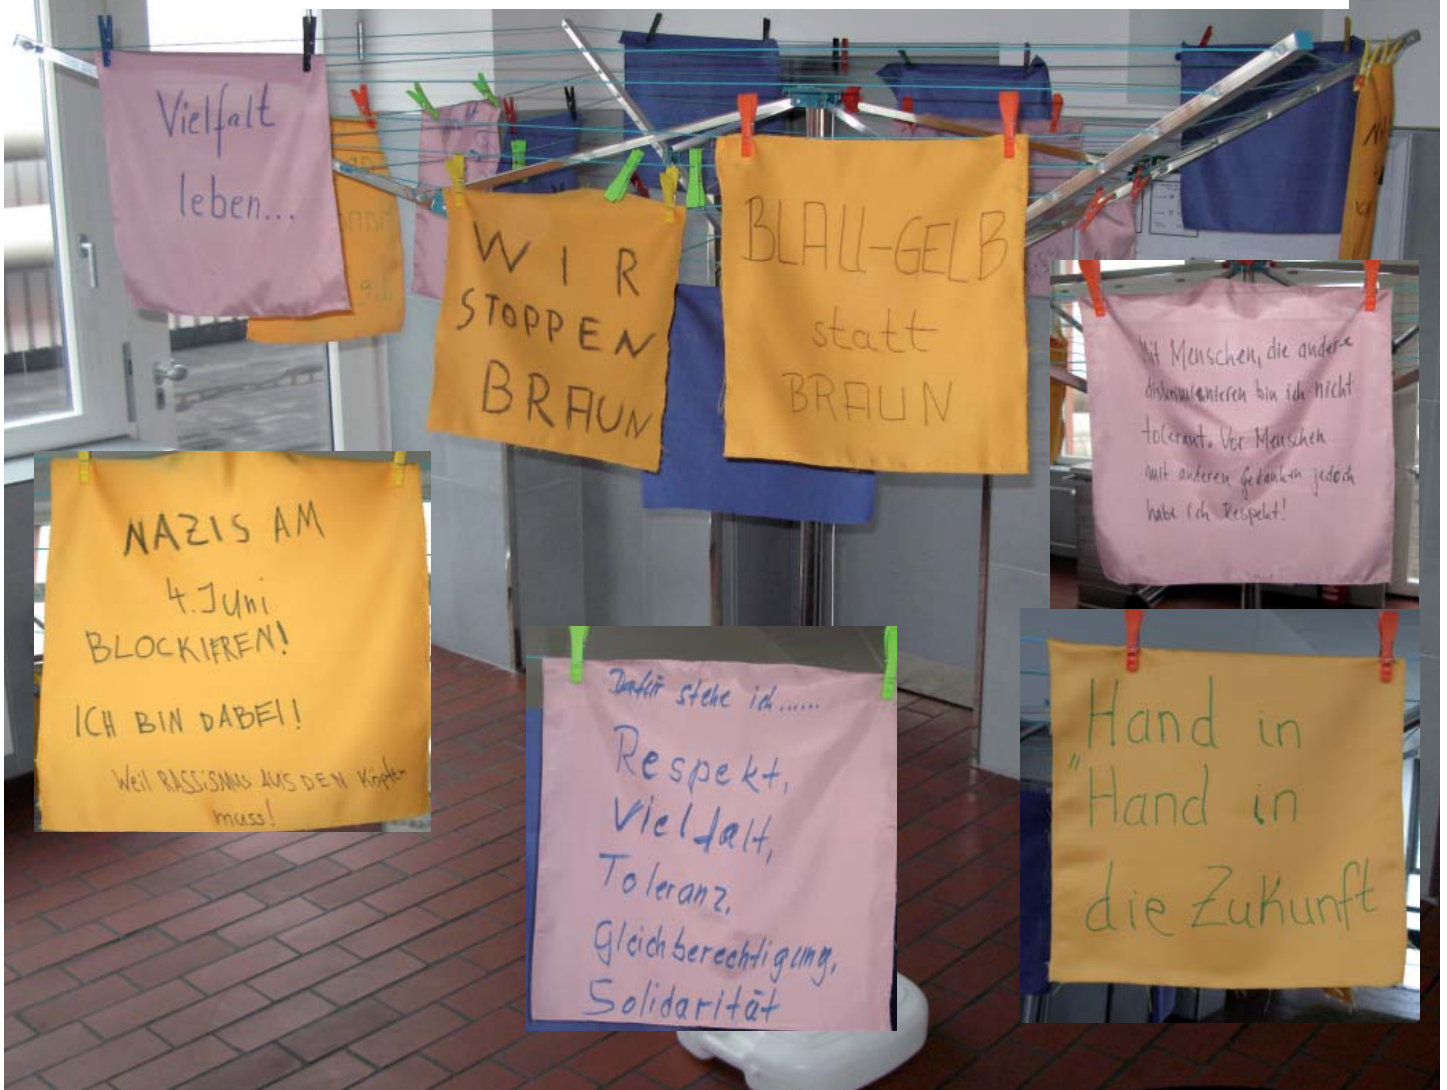 Vielfalt
leben...
WIR
STOPPEN
BRAUN
BLAU-GELB
statt
BRAUN
Mit Menschen, die andere
diskriminieren bin ich nicht
tolerant. Vor Menschen
mit anderen Gedanken jedoch
habe ich Respekt!
NAZIS AM
4. Juni
BLOCKIEREN!
ICH BIN DABEI!
Weil RASSiSMUS AUS DEN Köpfen
muss!
Dafür stehe ich......
Respekt,
Vielfalt,
Toleranz,
Gleichberechtigung,
Solidarität
"Hand in
Hand in
die Zukunft